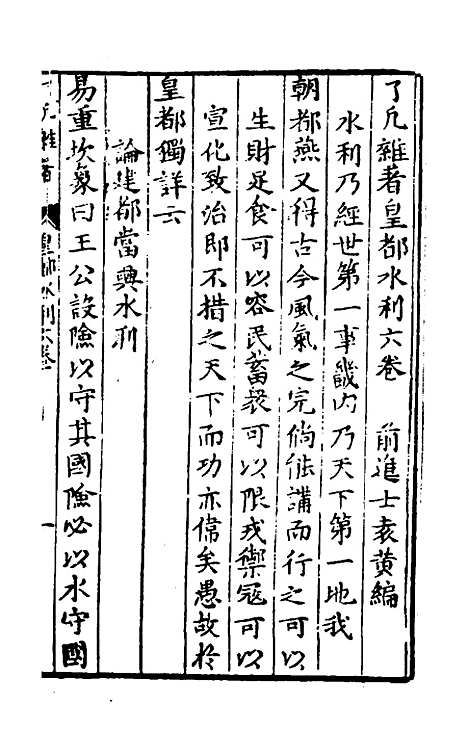 了凡雜著皇都水利六卷 前進士袁黄編
水利乃經世第一事畿内乃天下第一地我
朝都燕又得古今風氣之完倘能講而行之可以
生財足食可以容民蓄衆可以限戎禦寇可以
宣化致治即不措之天下而功亦偉矣愚故於
皇都獨詳云
論建都當興水利
易重坎彖曰王公設險以守其國險必以水守國
了凡雜著 皇都水利六卷 一